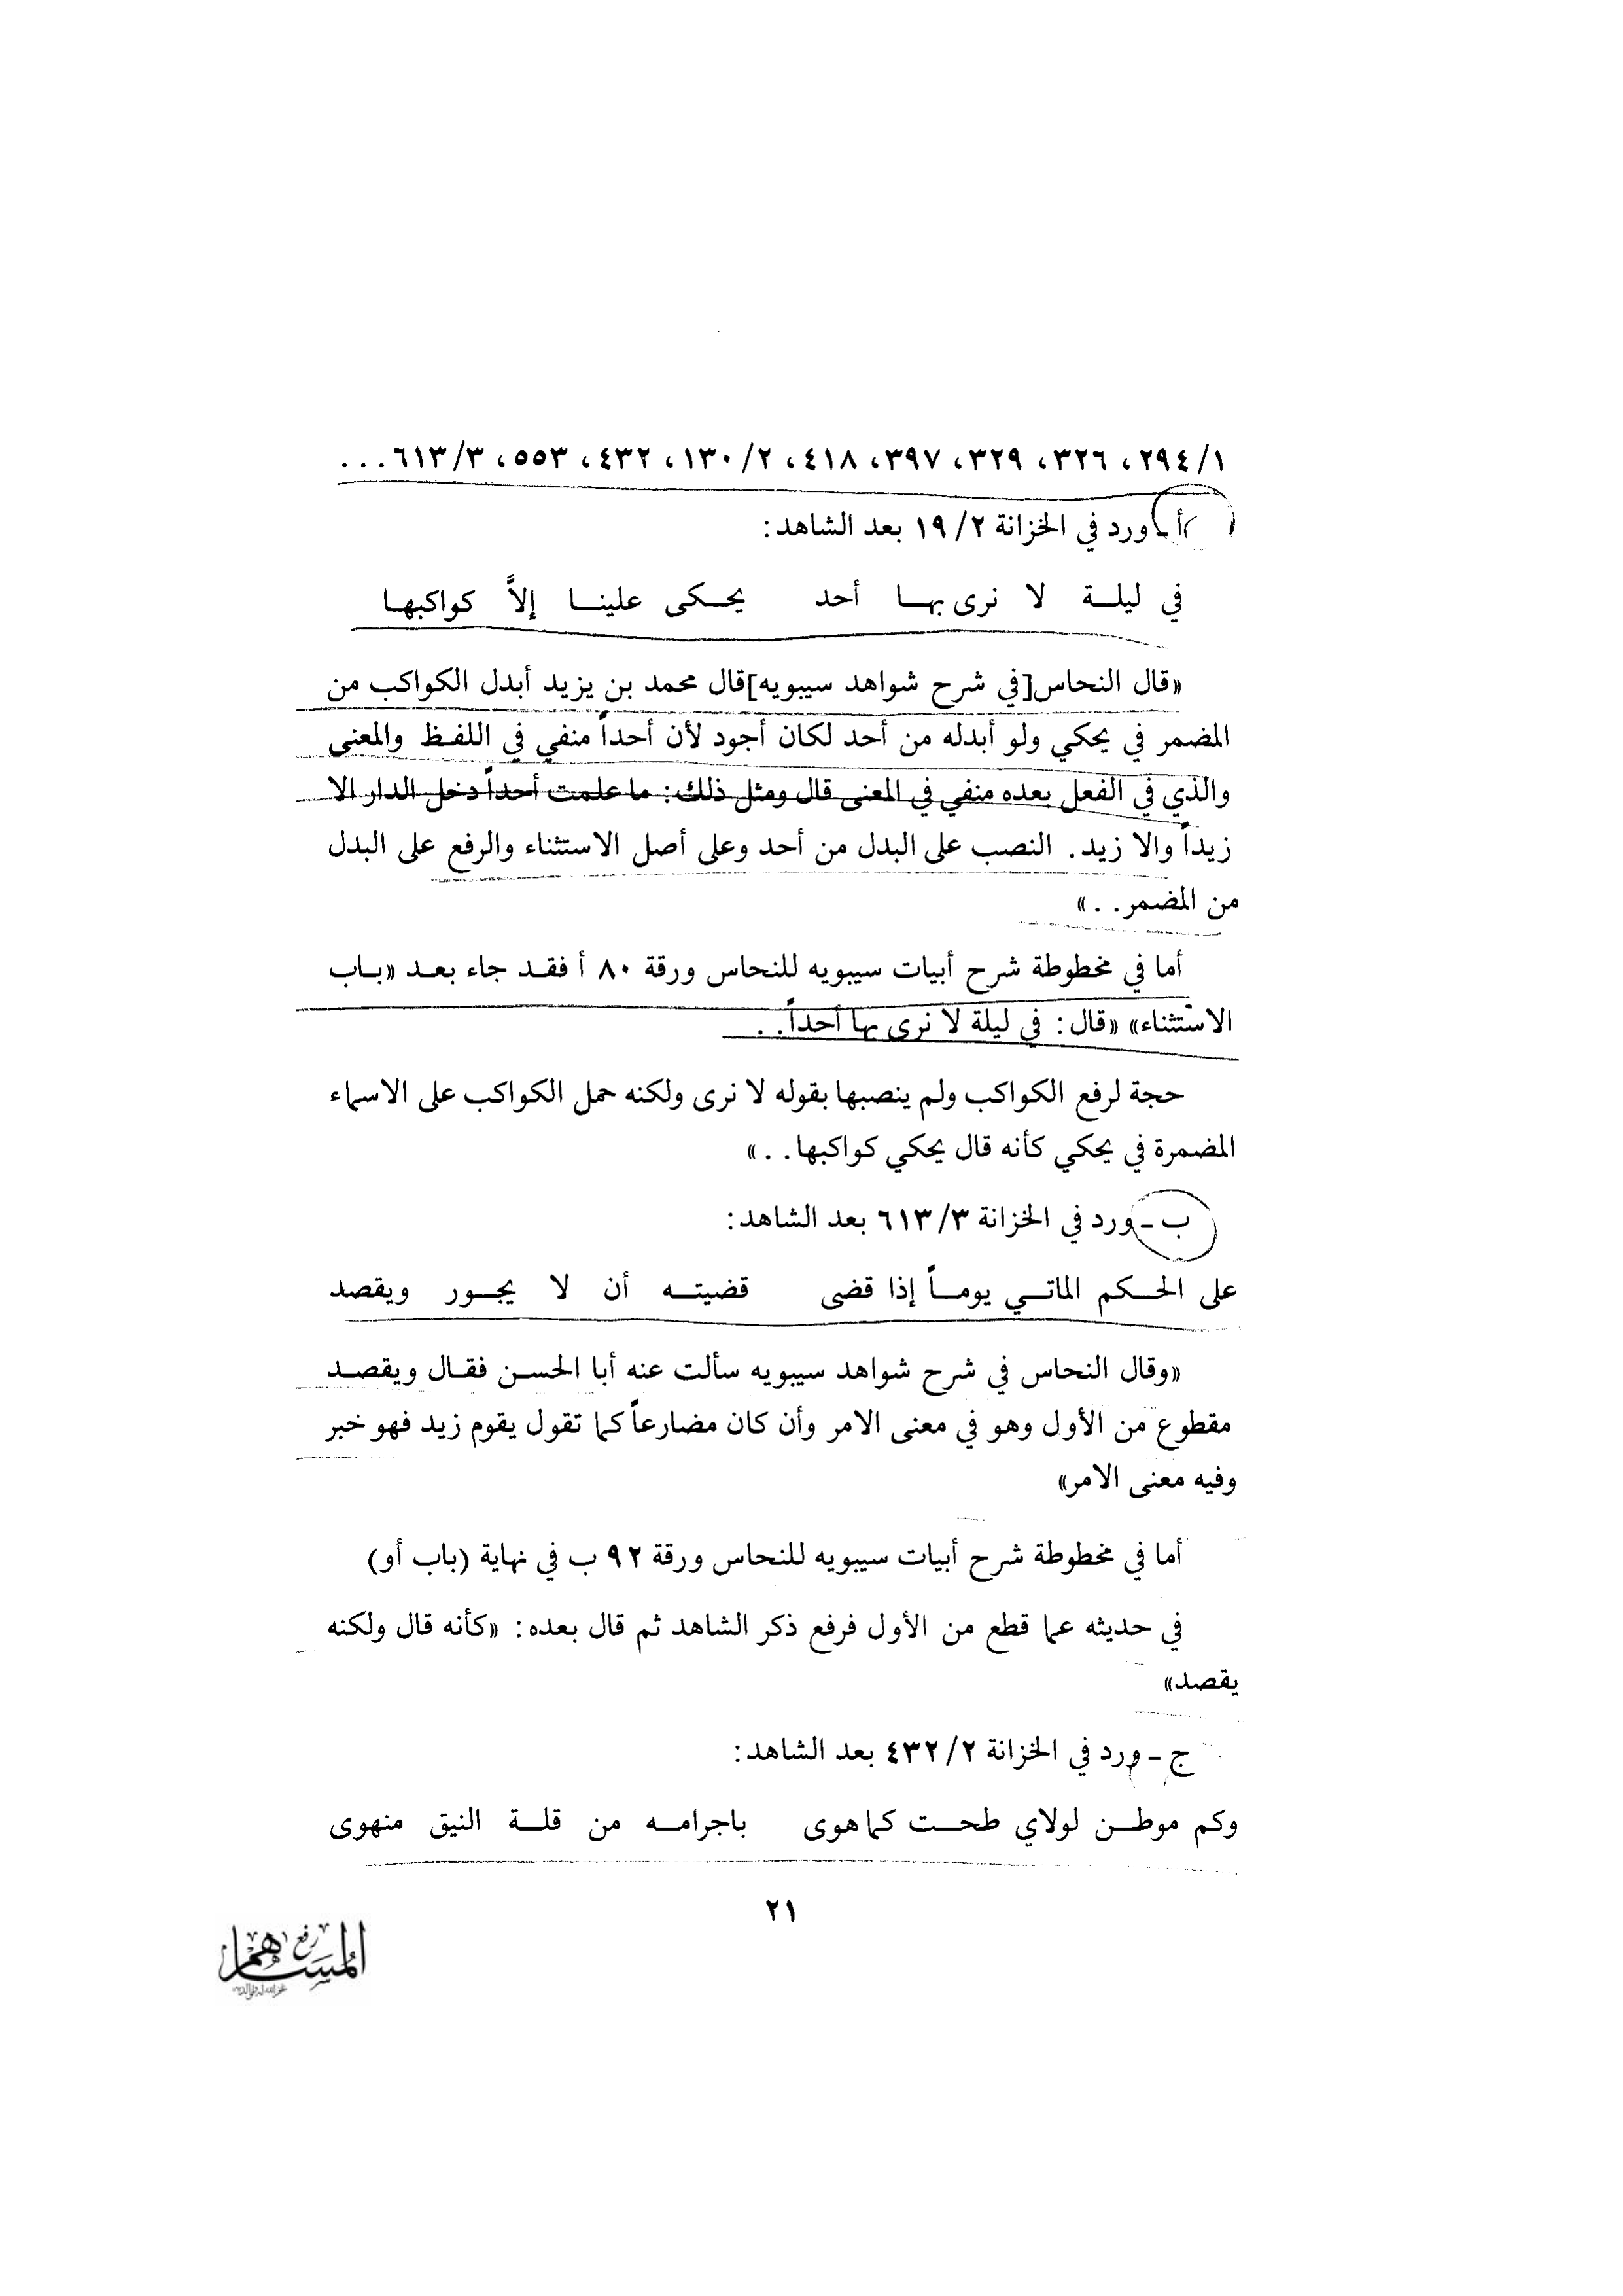 ١/٢٩٤، ٣٢٦، ٣٢٩، ٣٩٧، ٤١٨، ٢/١٣٠، ٤٣٢، ٥٥٣، ٣/٦١٣...
أ ـ ورد في الخزانة ٢/١٩ بعد الشاهد:
في ليلـة لا نرى بهـا أحد يحـكى علينـا إلاَّ كواكبهـا
«قال النحاس[في شرح شواهد سيبويه]قال محمد بن يزيد أبدل الكواكب من
المضمر في يحكي ولو أبدله من أحد لكان أجود لأن أحداً منفي في اللفـظ والمعنى
والذي في الفعل بعده منفي في المعنى قال ومثل ذلك: ما علمت أحداً دخل الدار الا
زيداً والا زيد. النصب على البدل من أحد وعلى أصل الاستثناء والرفع على البدل
من المضمر..»
أما في مخطوطة شرح أبيات سيبويه للنحاس ورقة ٨٠ أ فقـد جاء بعـد «بـاب
الاستثناء» «قال: في ليلة لا نرى بها أحداً..
حجة لرفع الكواكب ولم ينصبها بقوله لا نرى ولكنه حمل الكواكب على الاسماء
المضمرة في يحكي كأنه قال يحكي كواكبها..»
ب ـ ورد في الخزانة ٣/٦١٣ بعد الشاهد:
على الحـكم الماتـي يومـاً إذا قضى قضيتـه أن لا يجـور ويقصد
«وقال النحاس في شرح شواهد سيبويه سألت عنه أبا الحسـن فقـال ويقصـد
مقطوع من الأول وهو في معنى الامر وأن كان مضارعاً كما تقول يقوم زيد فهو خبر
وفيه معنى الامر»
أما في مخطوطة شرح أبيات سيبويه للنحاس ورقة ٩٢ ب في نهاية (باب أو)
في حديثه عما قطع من الأول فرفع ذكر الشاهد ثم قال بعده: «كأنه قال ولكنه
يقصد»
ج ـ ورد في الخزانة ٢/٤٣٢ بعد الشاهد:
وكم موطـن لولاي طحـت كما هوى باجرامـه من قلـة النيق منهوى
٢١
رفع
المساهم